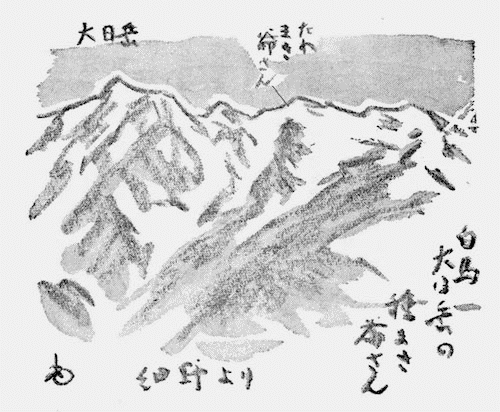 大日岳
たね
まき
爺さん
白馬
大日岳の
種まき
爺さん
細野より